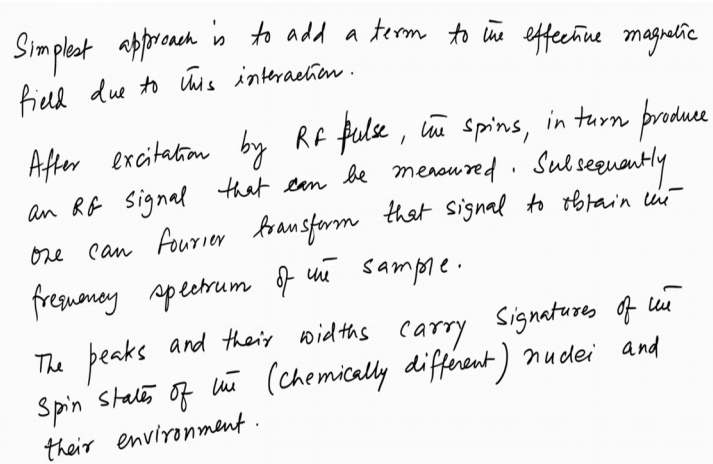 Simplest approach is to add a term to the effective magnetic
field due to this interaction.
After excitation by RF pulse, the spins, in turn produce
an RF signal that can be measured. Subsequently
one can fourier transform that signal to obtain the
frequency spectrum of the sample.
The peaks and their widths carry signatures of the
spin states of the (chemically different) nuclei and
their environment.